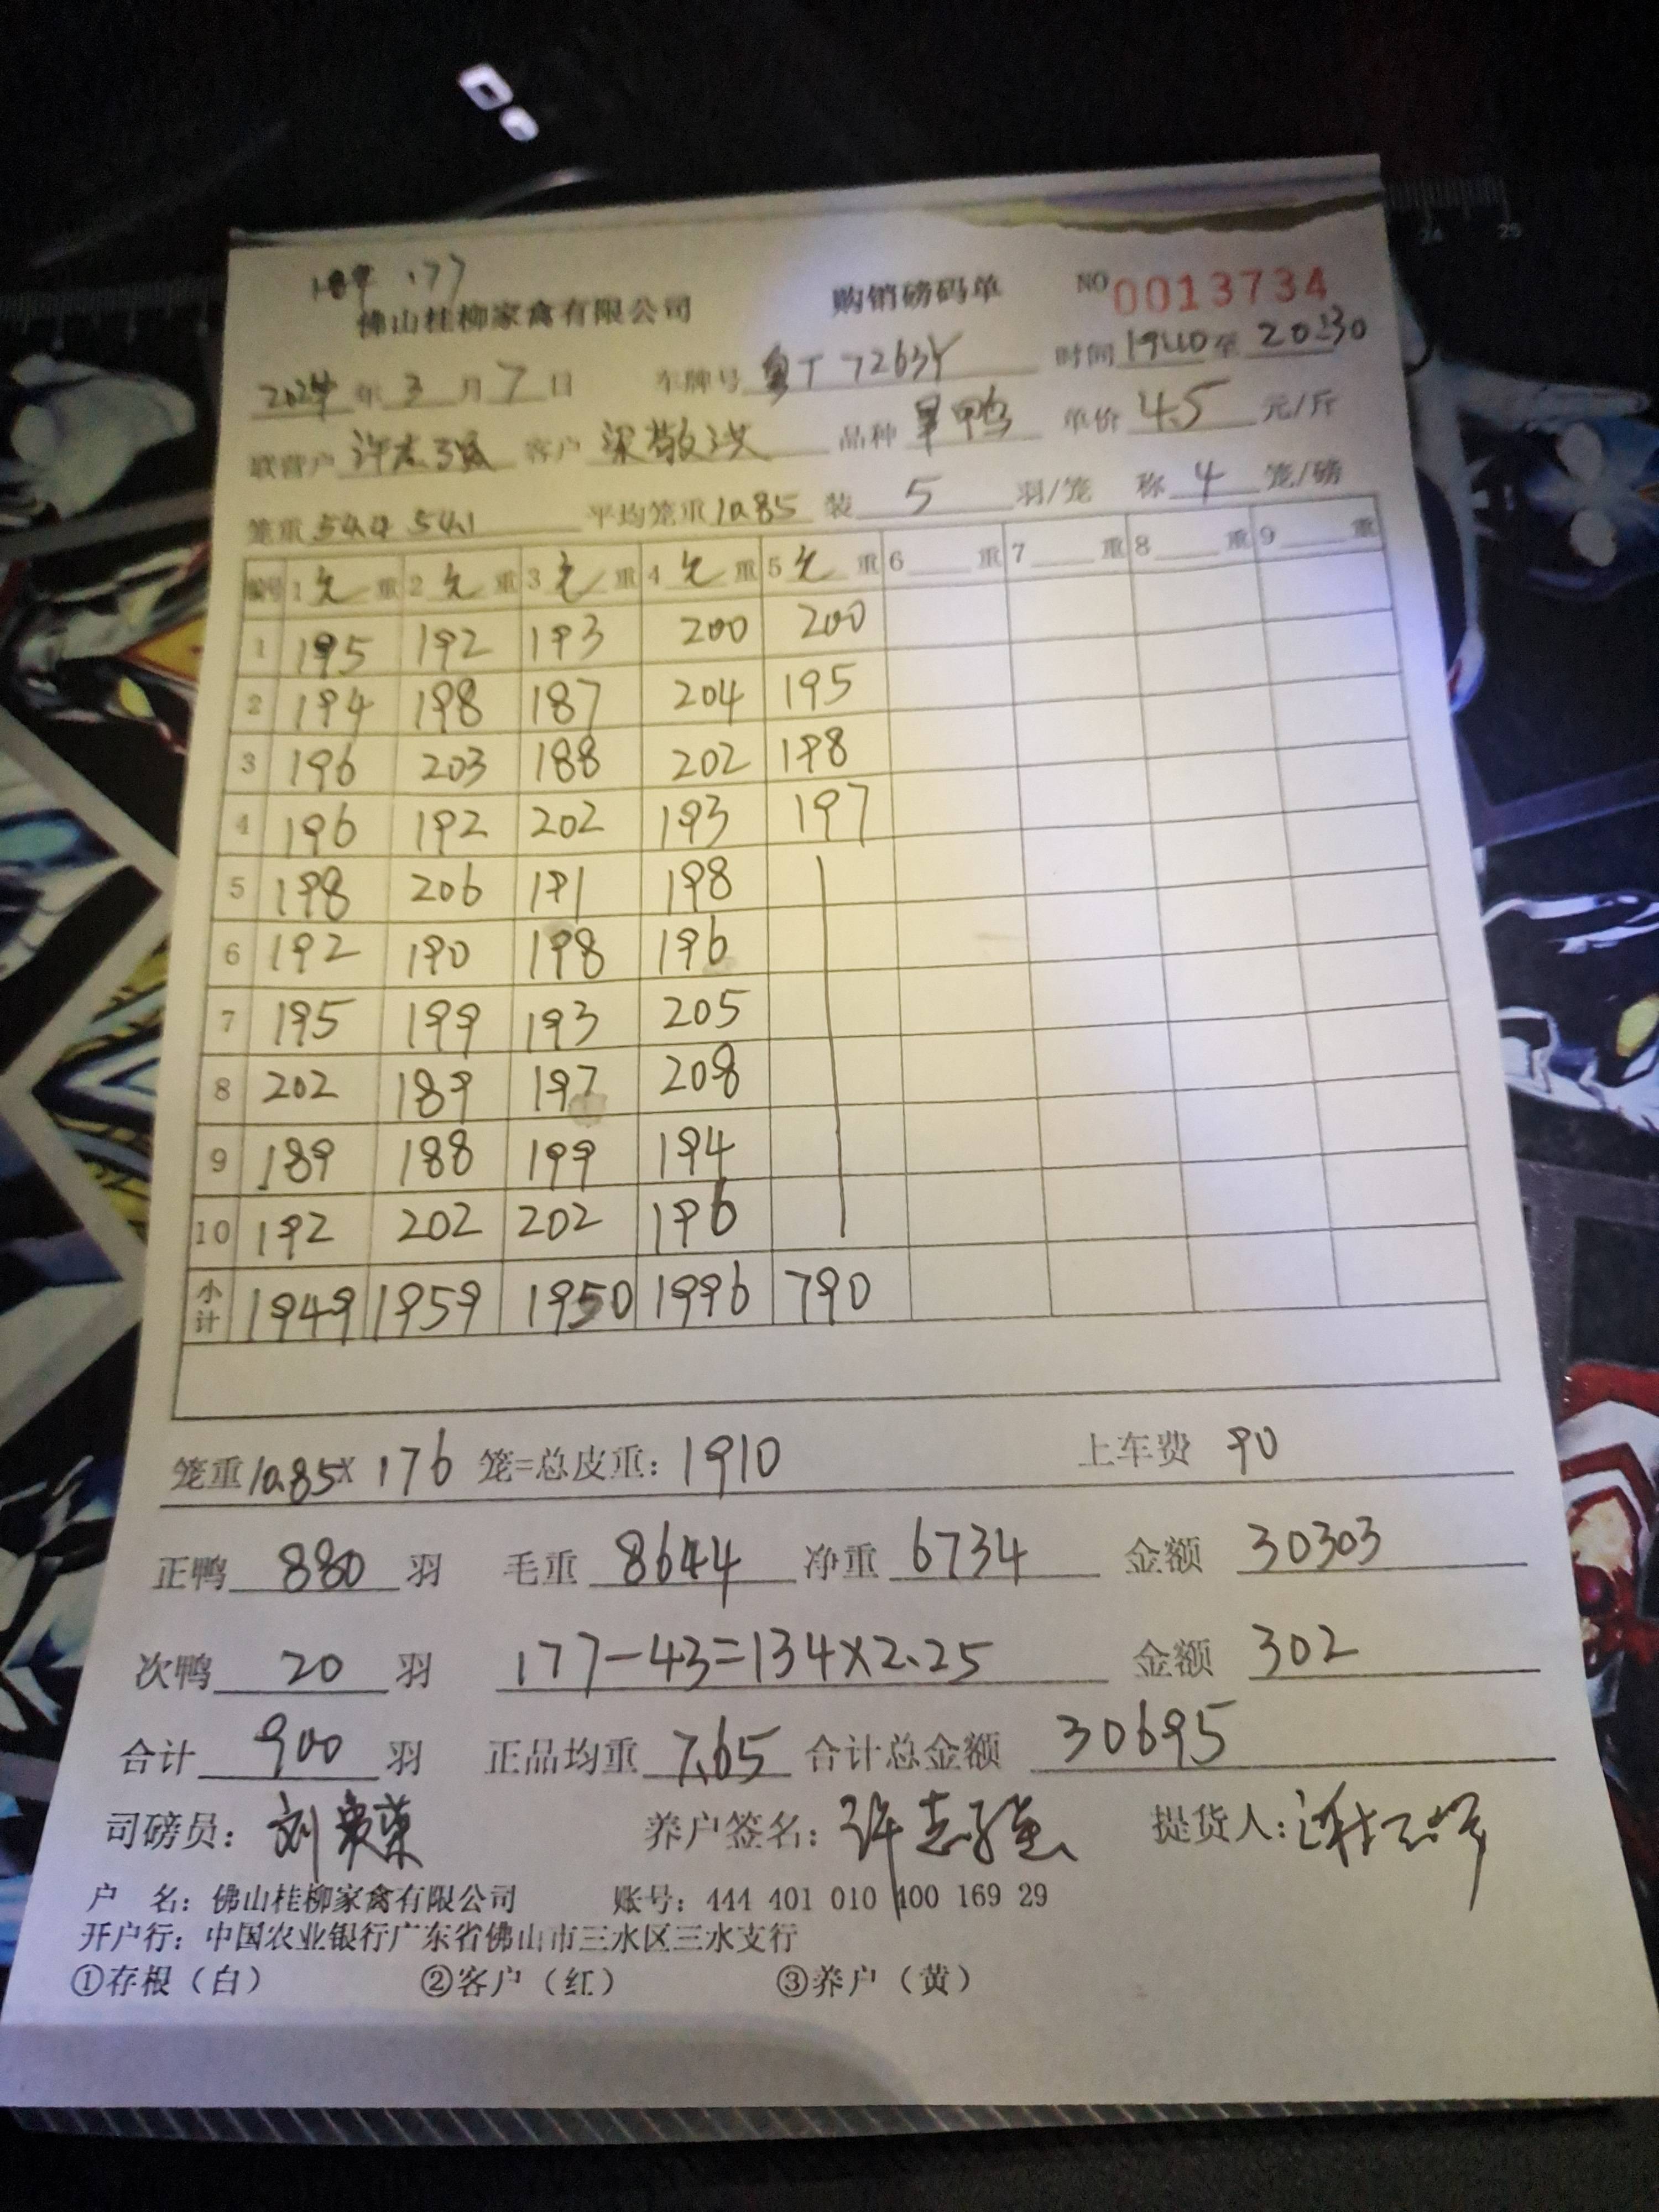 177
佛山桂柳家禽有限公司 购销磅码单 NO 0013734
2024年3月7日 车牌号 粤T7263Y 时间1940至2030
联营户 许志强 客户 梁敬洪 品种 旱鸭 单价 4.5 元/斤
笼重 54.4 54.1 平均笼重 10.85 装 5 羽/笼 称 4 笼/磅
编号 1 毛 重 2 毛 重 3 毛 重 4 毛 重 5 毛 重 6 重 7 重 8 重 9 重
1 195 192 193 200 200
2 194 198 187 204 195
3 196 203 188 202 198
4 196 192 202 193 197
5 198 206 191 198
6 192 190 198 196
7 195 199 193 205
8 202 189 197 208
9 189 188 199 194
10 192 202 202 196
小计 1949 1959 1950 1996 790
笼重 10.85 × 176 笼=总皮重: 1910 上车费 90
正鸭 880 羽 毛重 8644 净重 6734 金额 30303
次鸭 20 羽 177-43=134×2.25 金额 302
合计 900 羽 正品均重 7.65 合计总金额 30695
司磅员: 养户签名: 许志强 提货人:
户 名: 佛山桂柳家禽有限公司 账号: 444 401 010 400 169 29
开户行: 中国农业银行广东省佛山市三水区三水支行
①存根(白) ②客户(红) ③养户(黄)